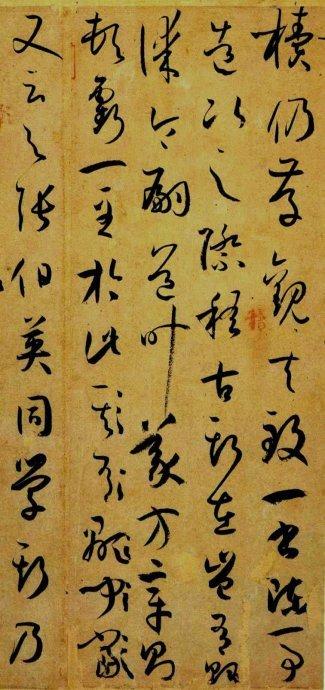 牘仍存觀夫致一書陳一事
造次之際稽古斯在豈有貽
謀令嗣道叶義方章則
頓虧一至於此
又云与張伯英同學斯乃